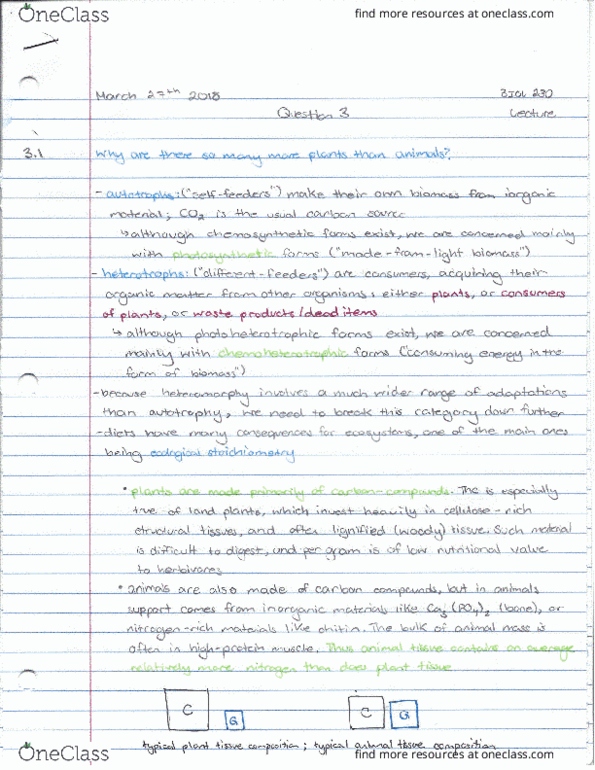 OneClass
find more resources at oneclass.com
March 27th 2018
BIOL 230
Question 3
Lecture
3.1
Why are there so many more plants than animals?
- autotrophs: ("self-feeders") make their own biomass from inorganic
material; CO2 is the usual carbon source
↳ although chemosynthetic forms exist, we are concerned mainly
with photosynthetic forms ("made-from-light biomass")
- heterotrophs: ("different-feeders") are consumers, acquiring their
organic matter from other organisms: either plants, or consumers
of plants, or waste products/dead items
↳ although photoheterotrophic forms exist, we are concerned
mainly with chemoheterotrophic forms ("consuming energy in the
form of biomass")
- because heteromorphy involves a much wider range of adaptations
than autotrophy, we need to break this category down further
- diets have many consequences for ecosystems, one of the main ones
being ecological stoichiometry
• plants are made primarily of carbon-compounds. The is especially
true of land plants, which invest heavily in cellulose-rich
structural tissues, and often lignified (woody) tissue. Such material
is difficult to digest, and per gram is of low nutritional value
to herbivores
• animals are also made of carbon compounds, but in animals
support comes from inorganic materials like Ca3(PO4)2 (bone), or
nitrogen-rich materials like chitin. The bulk of animal mass is
often in high-protein muscle. Thus animal tissue contains on average
relatively more nitrogen than does plant tissue
C
G
C
G
typical plant tissue composition; typical animal tissue composition
OneClass
find more resources at oneclass.com